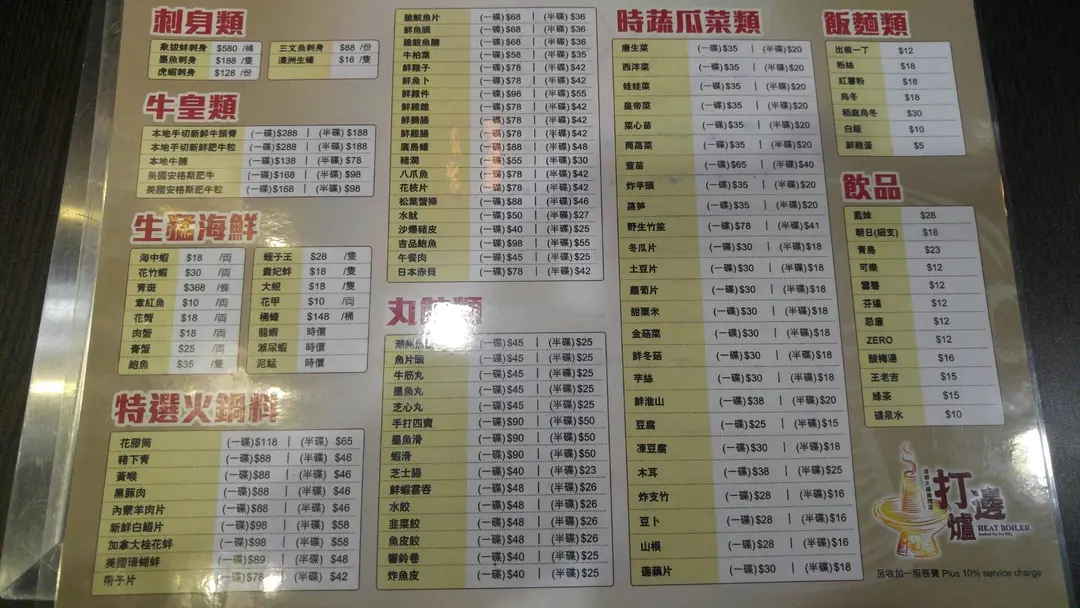 刺身類
象拔蚌刺身 $580 /條
墨魚刺身 $188 /隻
虎蝦刺身 $128 /份
三文魚刺身 $88 /份
澳洲生蠔 $16 /隻
牛皇類
本地手切新鮮牛頸脊 (一碟)$288 | (半碟) $188
本地手切新鮮肥牛粒 (一碟)$288 | (半碟) $188
本地牛𦟌 (一碟)$138 | (半碟) $78
美國安格斯肥牛 (一碟)$168 | (半碟) $98
美國安格斯肥牛粒 (一碟)$168 | (半碟) $98
生猛海鮮
海中蝦 $18 /両
花竹蝦 $30 /両
青斑 $368 /條
章紅魚 $10 /両
花蟹 $18 /両
肉蟹 $18 /両
膏蟹 $25 /両
鮑魚 $35 /隻
蟶子王 $28 /隻
貴妃蚌 $18 /隻
大蜆 $18 /隻
花甲 $10 /両
桶蠔 $148 /桶
龍蝦 時價
瀨尿蝦 時價
泥鯭 時價
特選火鍋料
花膠筒 (一碟)$118 | (半碟) $65
豬下青 (一碟)$88 | (半碟) $46
黃喉 (一碟)$88 | (半碟) $46
黑豚肉 (一碟)$88 | (半碟) $46
內蒙羊肉片 (一碟)$88 | (半碟) $46
新鮮白鱔片 (一碟)$98 | (半碟) $58
加拿大桂花蚌 (一碟)$98 | (半碟) $58
美國珊瑚蚌 (一碟)$89 | (半碟) $48
帶子片 (一碟)$78 | (半碟) $42
脆鯇魚片 (一碟)$68 | (半碟)$36
鮮魚頭 (一碟)$68 | (半碟)$36
脆鯇魚腩 (一碟)$68 | (半碟)$36
牛柏葉 (一碟)$58 | (半碟)$35
鮮雞子 (一碟)$78 | (半碟)$42
鮮魚卜 (一碟)$78 | (半碟)$42
鮮雞件 (一碟)$98 | (半碟)$55
鮮雞雜 (一碟)$78 | (半碟)$42
鮮鵝腸 (一碟)$78 | (半碟)$42
鮮雞腸 (一碟)$78 | (半碟)$42
廣島蠔 (一碟)$88 | (半碟)$48
豬潤 (一碟)$55 | (半碟)$30
八爪魚 (一碟)$78 | (半碟)$42
花枝片 (一碟)$78 | (半碟)$42
松葉蟹棒 (一碟)$88 | (半碟)$46
水魷 (一碟)$50 | (半碟)$27
沙爆豬皮 (一碟)$40 | (半碟)$25
吉品鮑魚 (一碟)$98 | (半碟)$55
午餐肉 (一碟)$45 | (半碟)$25
日本赤貝 (一碟)$78 | (半碟)$42
丸餃類
潮州魚 (一碟)$45 | (半碟)$25
魚片頭 (一碟)$45 | (半碟)$25
牛筋丸 (一碟)$45 | (半碟)$25
墨魚丸 (一碟)$45 | (半碟)$25
芝心丸 (一碟)$45 | (半碟)$25
手打四寶 (一碟)$90 | (半碟)$50
墨魚滑 (一碟)$90 | (半碟)$50
蝦滑 (一碟)$90 | (半碟)$50
芝士腸 (一碟)$40 | (半碟)$23
鮮蝦雲吞 (一碟)$48 | (半碟)$26
水餃 (一碟)$48 | (半碟)$26
韭菜餃 (一碟)$48 | (半碟)$26
魚皮餃 (一碟)$48 | (半碟)$26
響鈴卷 (一碟)$40 | (半碟)$25
炸魚皮 (一碟)$40 | (半碟)$25
時蔬瓜菜類
唐生菜 (一碟)$35 | (半碟)$20
西洋菜 (一碟)$35 | (半碟)$20
娃娃菜 (一碟)$35 | (半碟)$20
皇帝菜 (一碟)$35 | (半碟)$20
菜心苗 (一碟)$35 | (半碟)$20
茼蒿菜 (一碟)$35 | (半碟)$20
荳苗 (一碟)$65 | (半碟)$40
炸芋頭 (一碟)$35 | (半碟)$20
萵筍 (一碟)$35 | (半碟)$20
野生竹笙 (一碟)$78 | (半碟)$41
冬瓜片 (一碟)$30 | (半碟)$18
土豆片 (一碟)$30 | (半碟)$18
蘿蔔片 (一碟)$30 | (半碟)$18
甜粟米 (一碟)$30 | (半碟)$18
金菇菜 (一碟)$30 | (半碟)$18
鮮冬菇 (一碟)$30 | (半碟)$18
芋絲 (一碟)$30 | (半碟)$18
鮮淮山 (一碟)$38 | (半碟)$20
豆腐 (一碟)$25 | (半碟)$15
凍豆腐 (一碟)$30 | (半碟)$18
木耳 (一碟)$38 | (半碟)$25
炸支竹 (一碟)$28 | (半碟)$16
豆卜 (一碟)$28 | (半碟)$16
山根 (一碟)$28 | (半碟)$16
蓮藕片 (一碟)$30 | (半碟)$18
飯麵類
出前一丁 $12
粉絲 $18
紅薯粉 $18
烏冬 $18
稻庭烏冬 $30
白飯 $10
鮮雞蛋 $5
飲品
藍妹 $28
朝日(細支) $18
青島 $23
可樂 $12
雪碧 $12
芬達 $12
忌廉 $12
ZERO $12
酸梅湯 $16
王老吉 $15
綠茶 $15
礦泉水 $10
打邊爐
HEAT BOILER
另收加一服務費 Plus 10% service charge